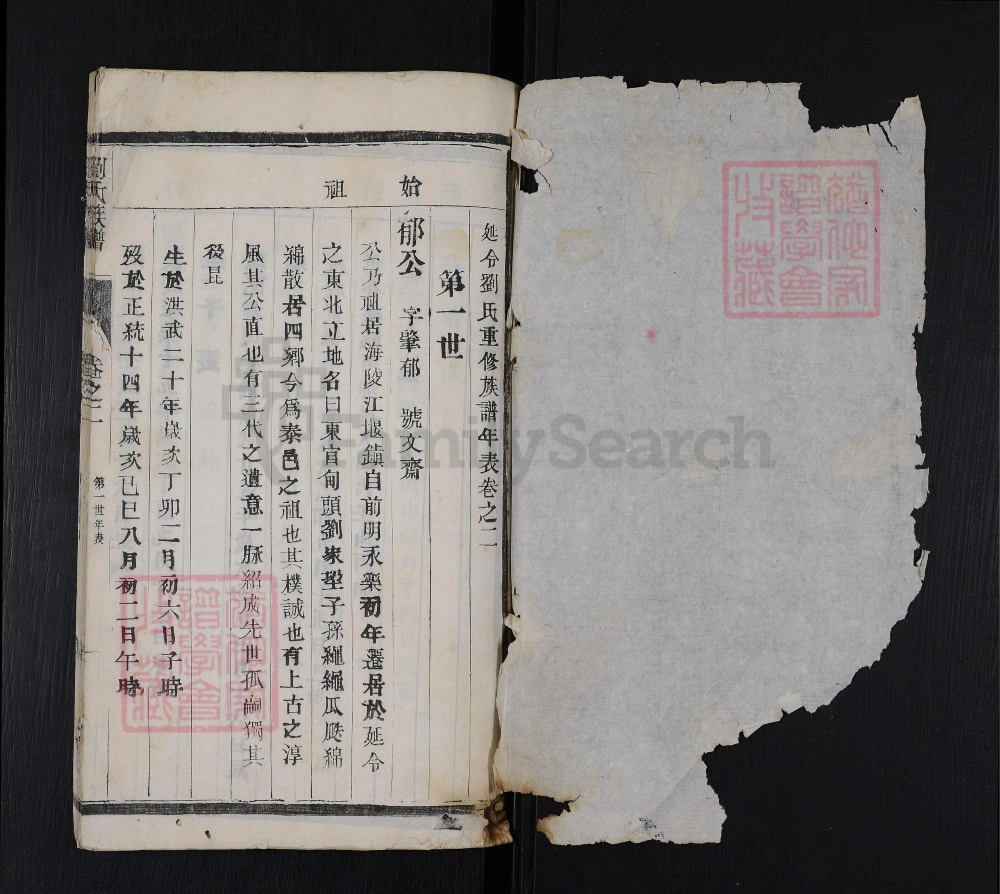 延令劉氏重修族譜年表卷之二
第一世
始祖
郁公 字肇郁 號文齋
公乃祖居海陵江堰鎮自前明永樂初年遷居於延令
之東北立地名曰東官甸頭劉家垈子孫繩繩瓜瓞綿
綿散居四鄉今爲泰邑之祖也其樸誠也有上古之淳
風其公直也有三代之遺意一脉紹成先世孤嗣獨其
後昆
生於洪武二十年歲次丁卯二月初六日子時
歿於正統十四年歲次己巳八月初二日午時
劉氏族譜
卷之二
第一世年表
譜學會
FamilySearch